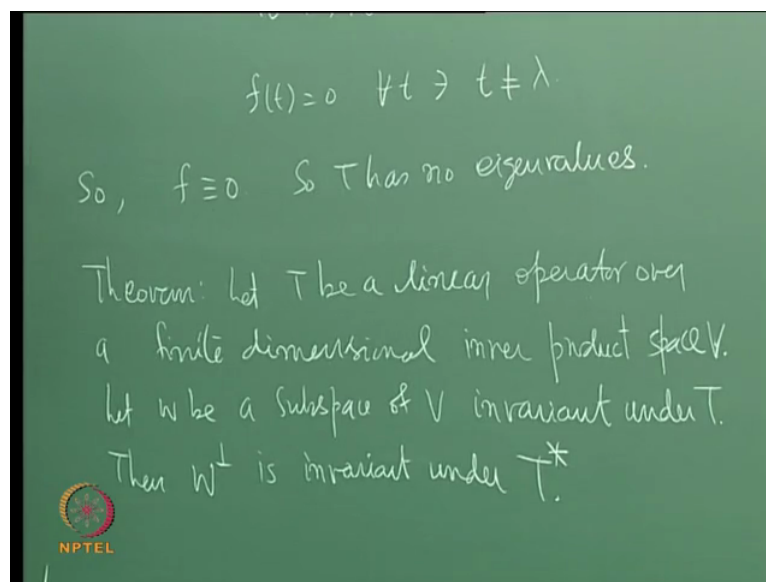 f(t)=0 ∀t ∋ t≠λ.
So, f≡0. So T has no eigenvalues.
Theorem: Let T be a linear operator over
a finite dimensional inner product space V.
Let W be a subspace of V invariant under T.
Then W^⊥ is invariant under T^*.
NPTEL